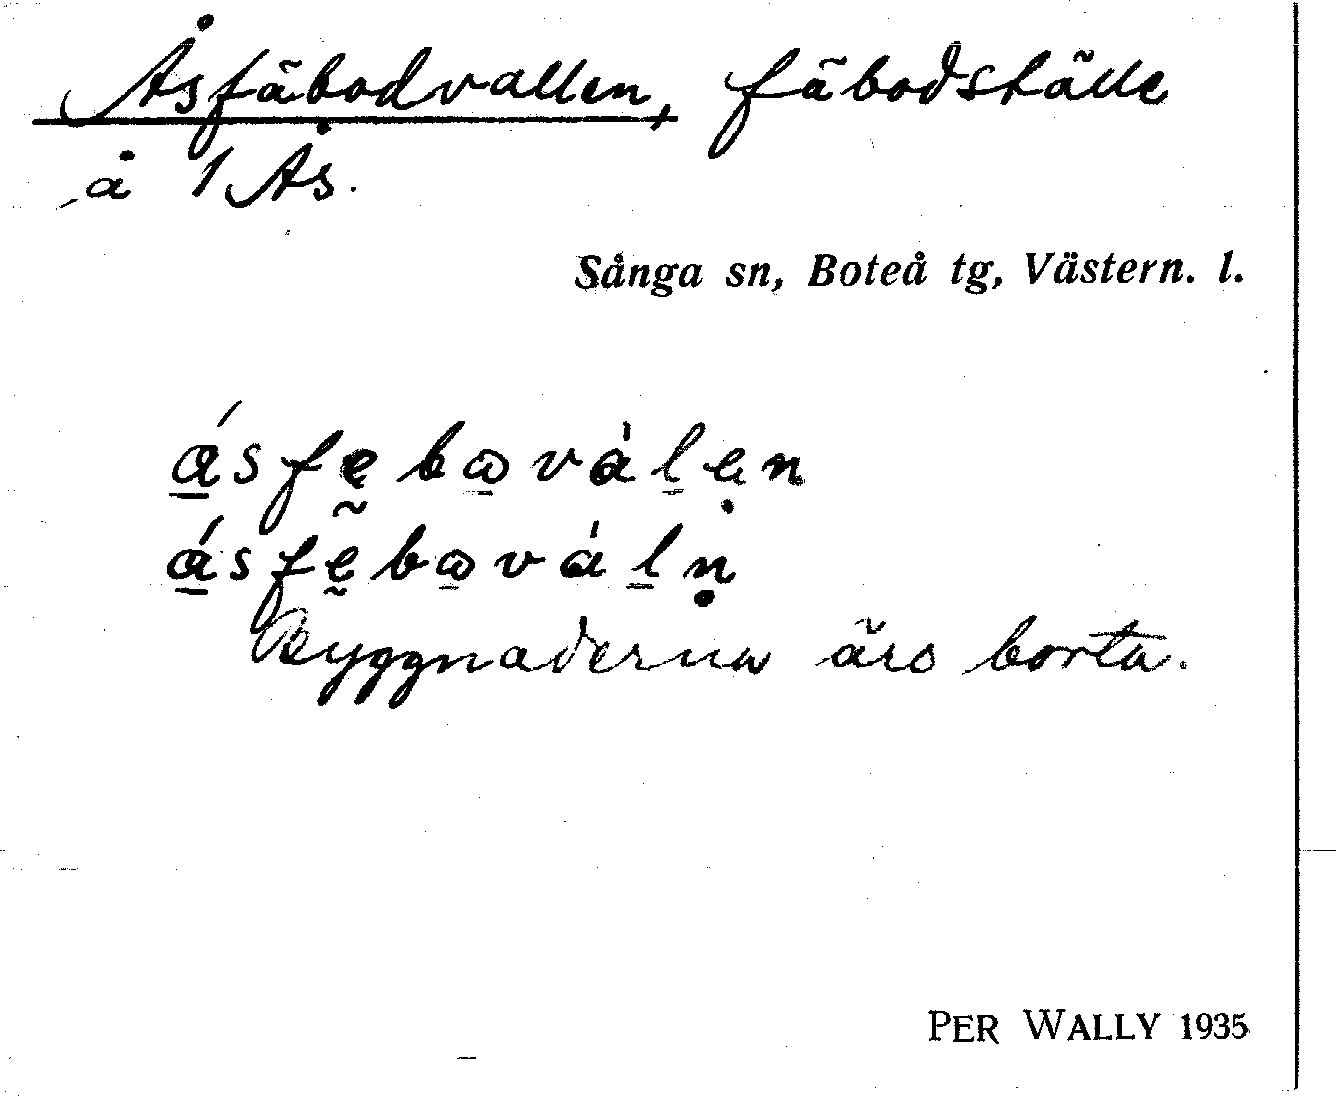 Åsfäbodvallen, fäbodställe
å 1 Ås.
Sånga sn, Boteå tg, Västern. l.
ásfębωvàlen
ásfębωváln̥
Byggnaderna äro borta.
PER WALLY 1935